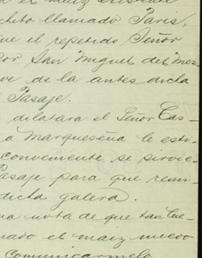 chito llamado Paris,
ue el repetido Señor
or San Miguel del Mez
or de la antes dicha
Pasaje.
dilatara el Señor Cas
a Marqueseña le esti
conveniente se sirvie
Pasaje para que remi
dicha galera.
na nota de que tan lue
nado el maiz nuevo
comunicarmelo